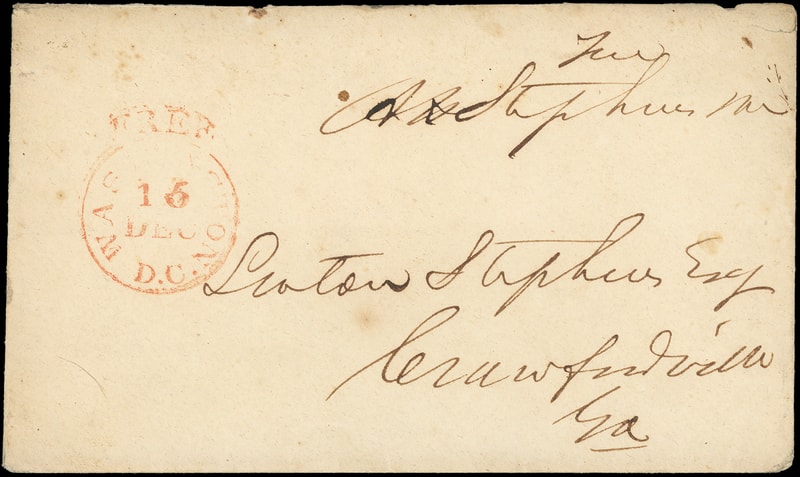 Free
A H Stephens MC
FREE
WASHINGTON
15
DEC
D.C.
Linton Stephens Esq
Crawfordville
Ga